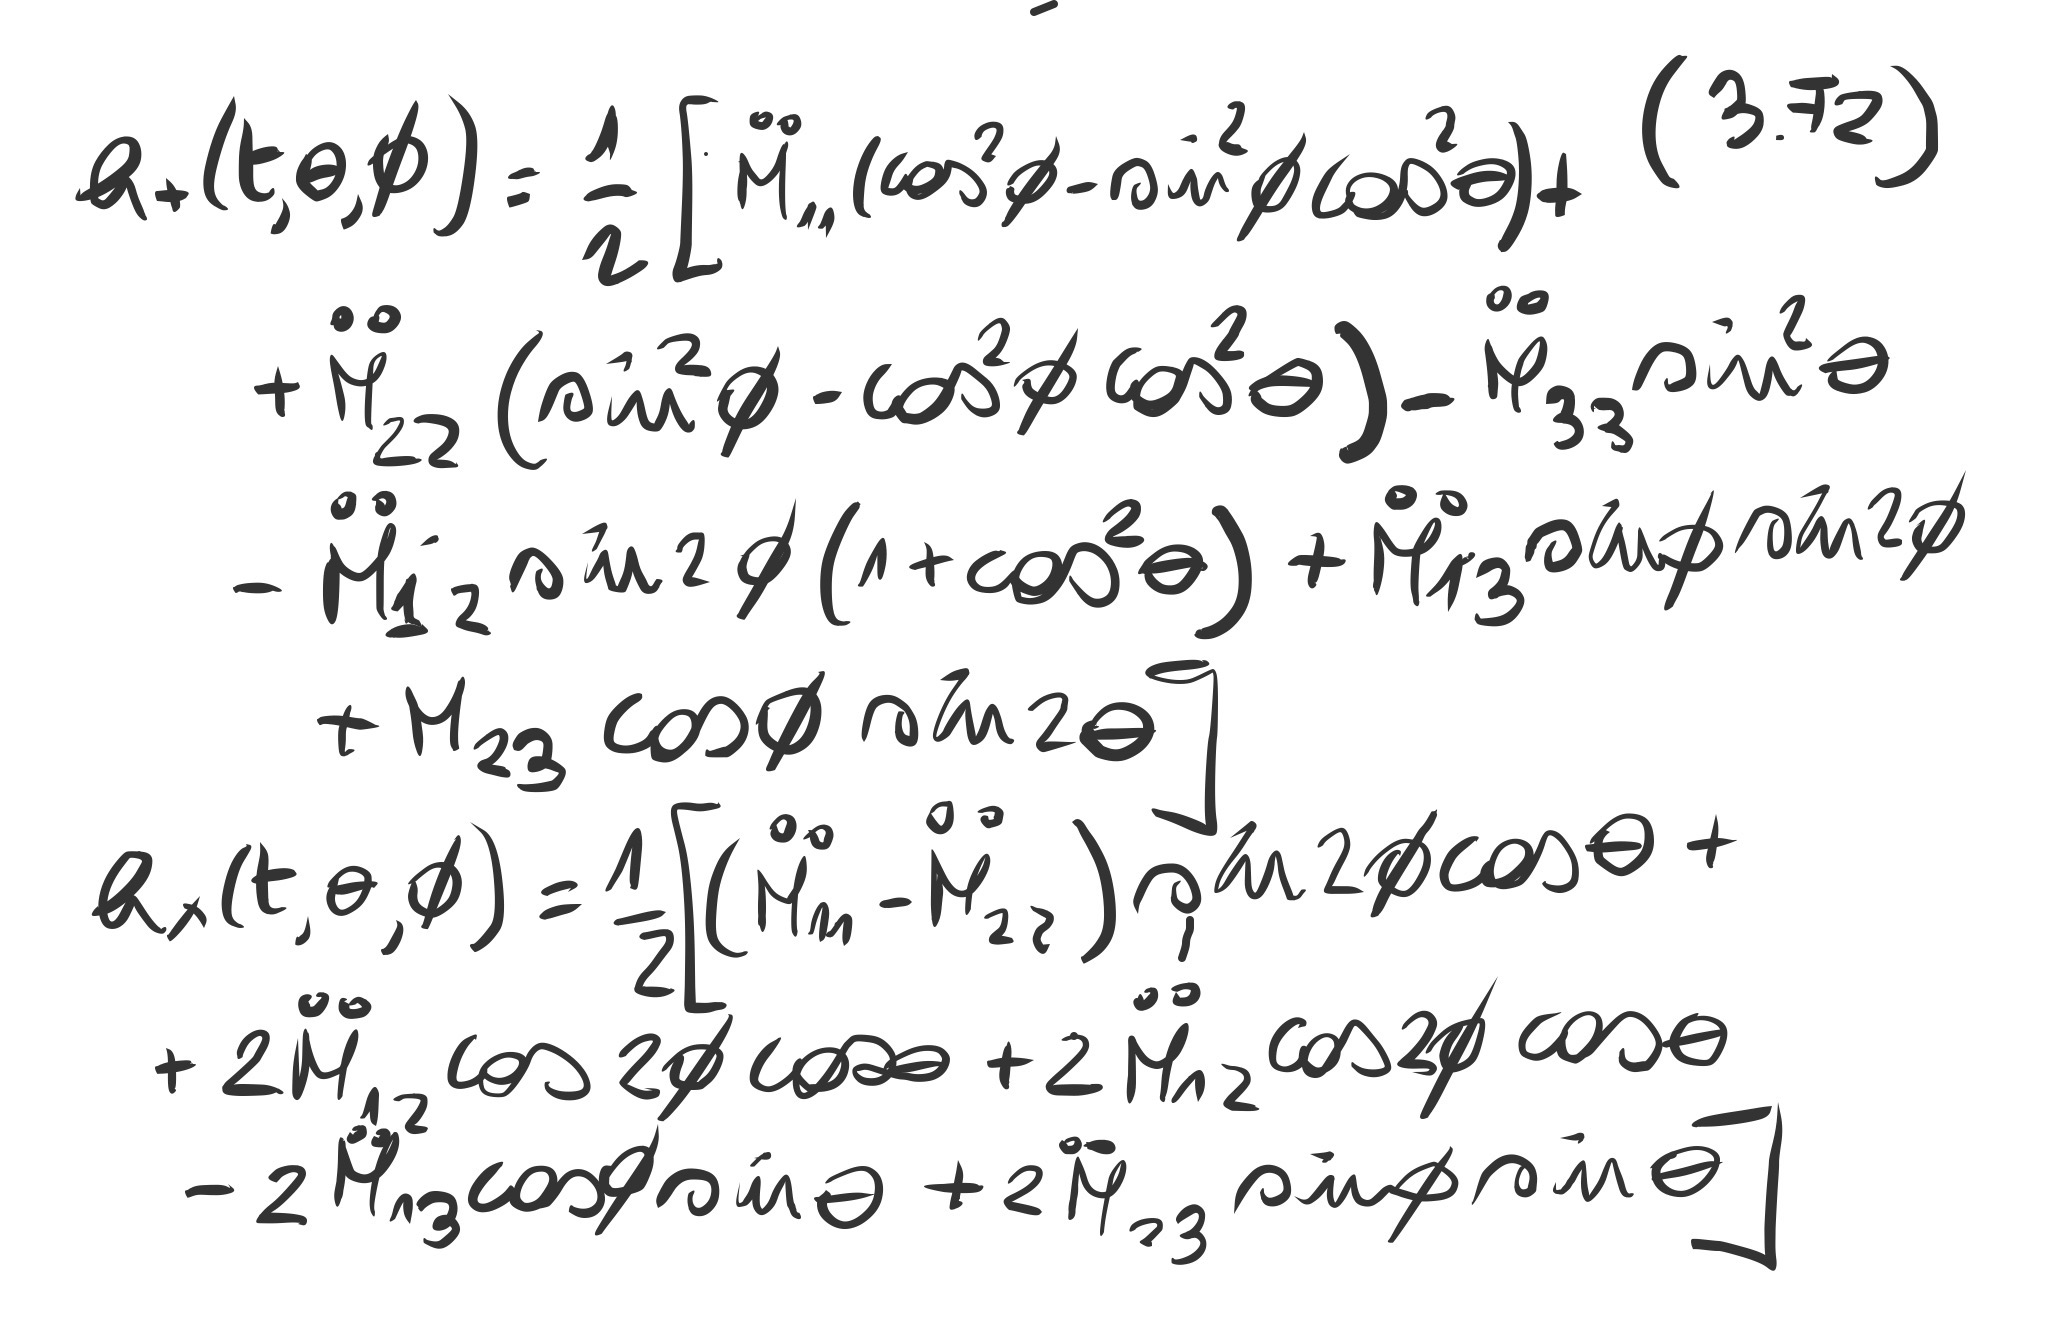 h₊(t,θ,ϕ) = 1/2 [ M̈₁₁ (cos²ϕ - sin²ϕ cos²θ) + (3.72)
+ M̈₂₂ (sin²ϕ - cos²ϕ cos²θ) - M̈₃₃ sin²θ
- M̈₁₂ sin2ϕ (1 + cos²θ) + M̈₁₃ sinϕ sin2ϕ
+ M₂₃ cosϕ sin2θ ]
hₓ(t,θ,ϕ) = 1/2 [ (M̈₁₁ - M̈₂₂) sin2ϕ cosθ +
+ 2M̈₁₂ cos2ϕ cosθ + 2M̈₁₂ cos2ϕ cosθ
- 2M̈₁₃ cosϕ sinθ + 2M̈₂₃ sinϕ sinθ ]